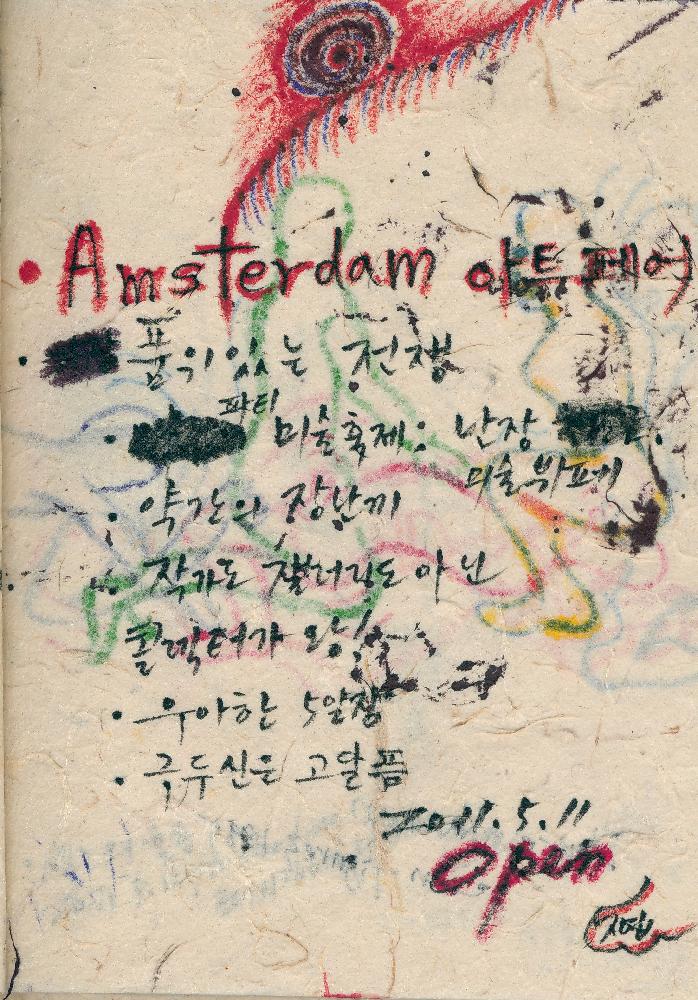 • Amsterdam 아트페어
• 품위 있는 전쟁
파티
• 미술축제: 난장
미술 뷔페
• 약간의 장난끼
• 작가도 갤러리도 아닌
콜렉터가 왕!
• 우아한 5일장
• 구두신은 고달픔
2011.5.11
Open